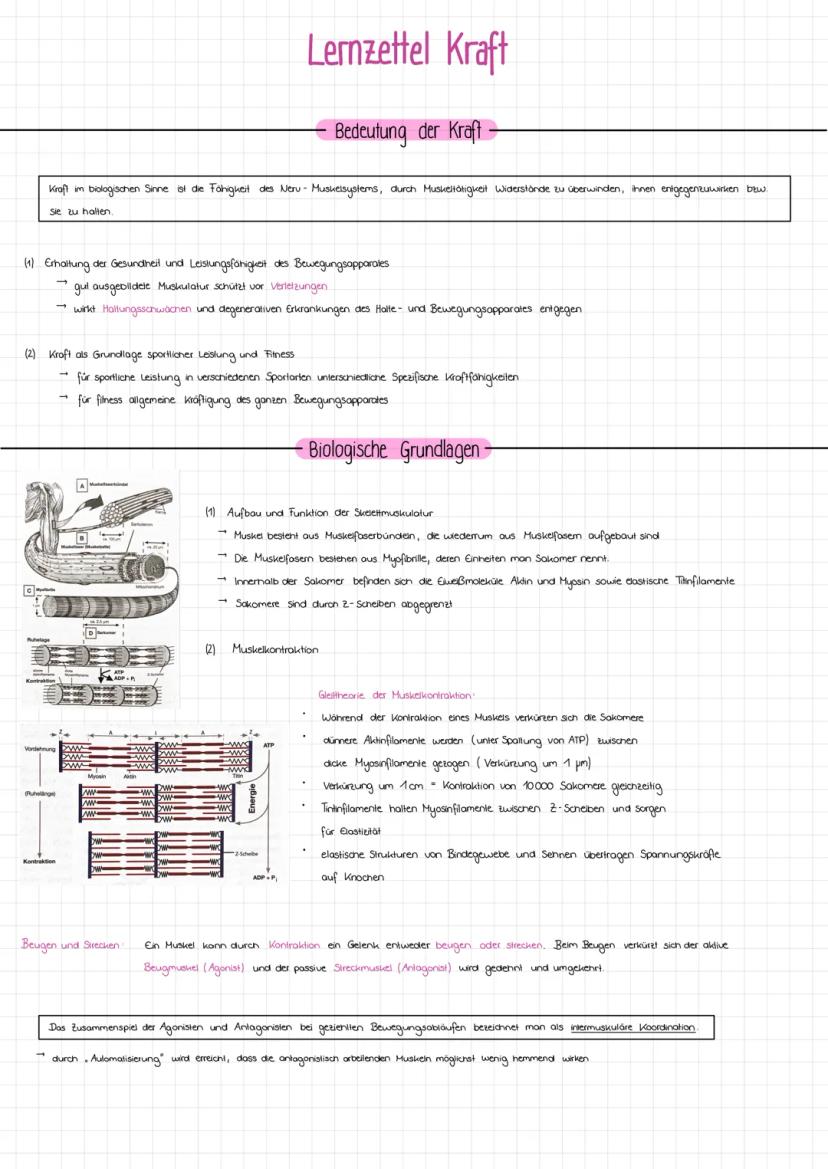 Lernzettel Kraft
Bedeutung der Kraft
Kraft im biologischen Sinne ist die Fähigkeit des Nerv - Muskelsystems, durch Muskeltätigkeit Widerstände zu überwinden, ihnen entgegenzuwirken bzw.
sie zu halten.
(1) Erhaltung der Gesundheit und Leistungsfähigkeit des Bewegungsapparates
→ gut ausgebildete Muskulatur schützt vor Verletzungen
→ wirkt Haltungsschwächen und degenerativen Erkrankungen des Halte- und Bewegungsapparates entgegen
(2) Kraft als Grundlage sportlicher Leistung und Fitness
→ für sportliche Leistung in verschiedenen Sportarten unterschiedliche Spezifische Kraftfähigkeiten
→ für fitness allgemeine Kräftigung des ganzen Bewegungsapparates
Biologische Grundlagen
A Muskelfaserbündel
Sarkolemm
B
ca. 100 µm
Muskelfaser (Muskelzelle)
ca. 20 µm
Mitochondrium
C Myofibrille
1 µm
ca. 2,5 µm
D Sarkomer
Ruhelage
Z-Scheibe
ATP
ADP + Pi
Kontraktion
(1) Aufbau und Funktion der Skelettmuskulatur
→ Muskel besteht aus Muskelfaserbündeln, die wiederrum aus Muskelfasern aufgebaut sind
→ Die Muskelfasern bestehen aus Myofibrille, deren Einheiten man Sakomer nennt.
→ Innerhalb der Sakomer befinden sich die Eiweißmoleküle Aktin und Myosin sowie elastische Titinfilamente
→ Sakomere sind durch Z-Scheiben abgegrenzt
(2) Muskelkontraktion
Gleittheorie der Muskelkontraktion:
· Während der Kontraktion eines Muskels verkürzen sich die Sakomere
· dünnere Aktinfilamente werden (unter Spaltung von ATP) zwischen
dicke Myosinfilamente gezogen ( Verkürzung um 1 µm)
· Verkürzung um 1cm = Kontraktion von 10000 Sakomere gleichzeitig
· Tintinfilamente halten Myosinfilamente zwischen Z-Scheiben und sorgen
für Elastizität
· elastische Strukturen von Bindegewebe und Sehnen übertragen Spannungskräfte
auf Knochen
Z A I A Z
Vordehnung
ATP
Myosin Aktin Titin
(Ruhelänge)
Energie
Z-Scheibe
Kontraktion
ADP + Pi
Beugen und Strecken: Ein Muskel kann durch Kontraktion ein Gelenk entweder beugen oder strecken. Beim Beugen verkürzt sich der aktive
Beugmuskel (Agonist) und der passive Streckmuskel (Antagonist) wird gedehnt und umgekehrt.
Das Zusammenspiel der Agonisten und Antagonisten bei gezielten Bewegungsabläufen bezeichnet man als intermuskuläre Koordination.
→ durch „Automatisierung" wird erreicht, dass die antagonistisch arbeitenden Muskeln möglichst wenig hemmend wirken